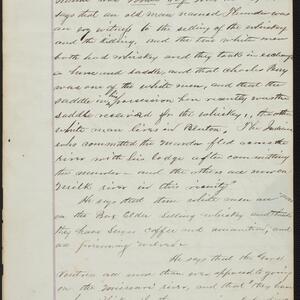 says that an old man named
an eye witness to the selling of the whiskey
and the killing, and the two white men
both had whiskey and they took in exchange
a Gun and saddle, and that Charles Perry
was one of the white men, and that the
saddle in possession him recently was the
saddle received for the whiskey, the other
white man lives in Benton. The Indians
who committed the murder fled across the
river with his lodge after committing
the murder and the others are now on
Milk river in this vicinity
He says that three white men are now
on the Box Elder selling whiskey and that
they have Sugar coffee and ammunition, and
are poisoning wolves
He says that the Gros
Ventres all said they was opposed to going
on the Missouri river, and that